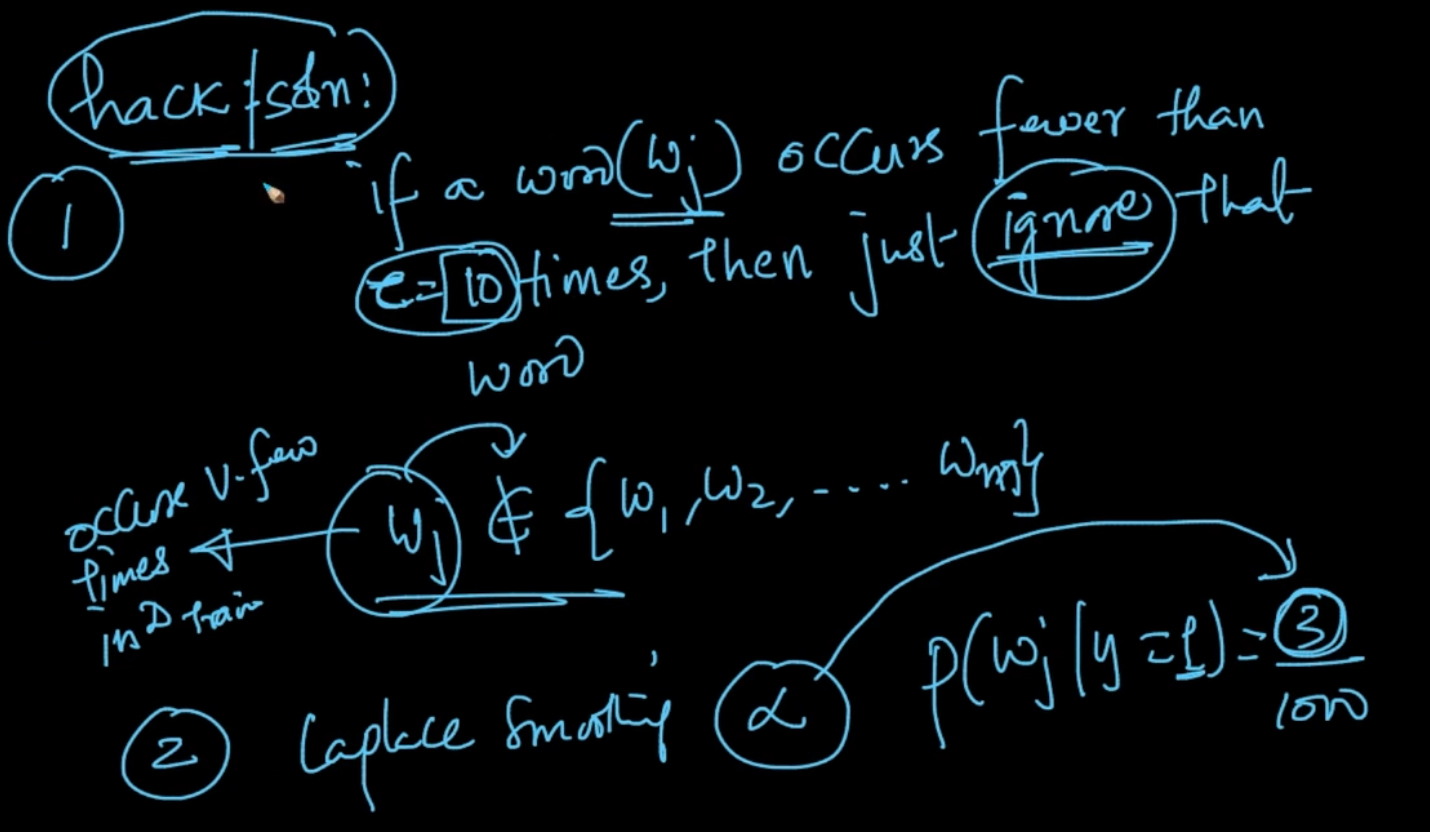 hack | soln:
① if a word (wj) occurs fewer than
τ = 10 times, then just ignore that
word
occurs v. few
times
in D train
wj ∉ {w1, w2, ..... wm}
② Laplace Smoothing, α P(wj | y = 1) = 3/1000